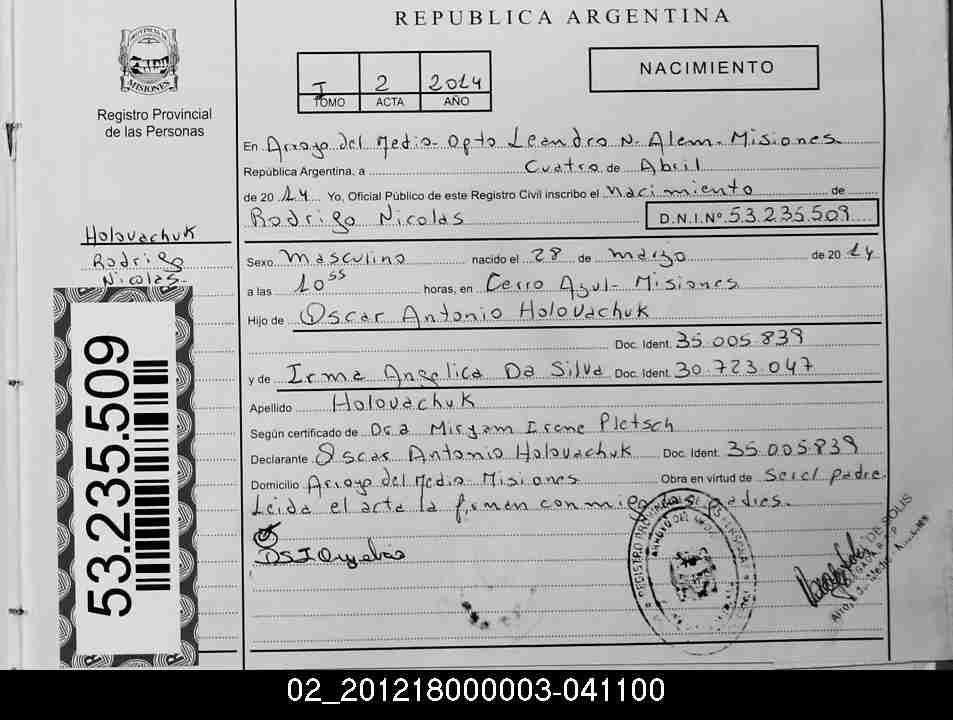 REPUBLICA ARGENTINA
PROVINCIA DE
MISIONES
Registro Provincial
de las Personas
I 2 2014
TOMO ACTA AÑO
NACIMIENTO
En Arroyo del Medio - Dpto Leandro N. Alem - Misiones
República Argentina, a Cuatro de Abril
de 2014 Yo, Oficial Público de este Registro Civil inscribo el Nacimiento de
Rodrigo Nicolas D.N.I.Nº 53.235.509
Holovachuk
Rodrigo
Nicolas.
Sexo Masculino nacido el 28 de marzo de 2014
a las 10 55 horas, en Cerro Azul - Misiones
Hijo de Oscar Antonio Holovachuk
Doc. Ident. 35.005.839
y de Irma Angelica Da Silva Doc. Ident. 30.723.047
Apellido Holovachuk
Según certificado de Dra Miryam Irene Pletsch
Declarante Oscar Antonio Holovachuk Doc. Ident. 35.005.839
Domicilio Arroyo del Medio Misiones Obra en virtud de Ser el padre.
Leida el acta la firman conmigo los padres.
53.235.509
REGISTRO PROVINCIAL DE LAS PERSONAS
ARROYO DEL MEDIO
DE SOLIS
02_201218000003-041100